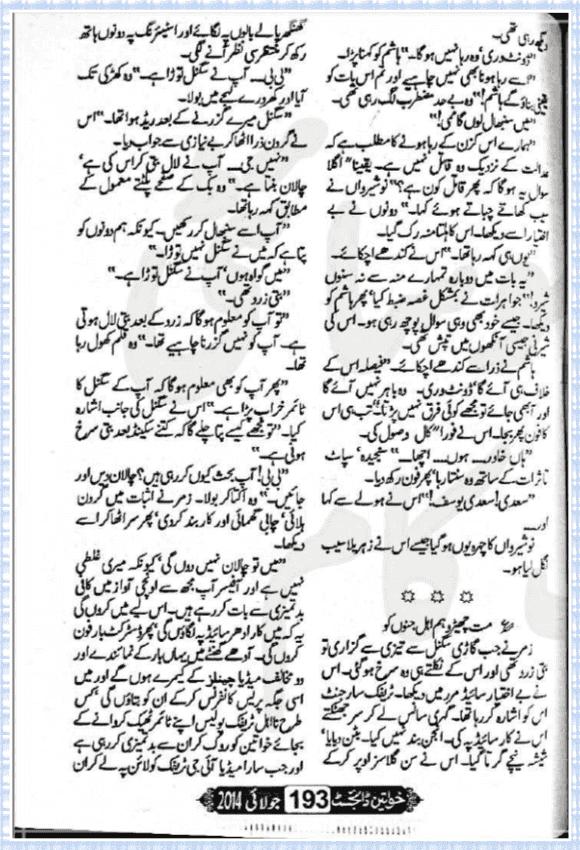 دیکھ رہی تھی۔
”ڈونٹ وری! وہ رہا نہیں ہوگا۔“ ہاشم کو کہنا پڑا۔
”اسے رہا ہونا بھی نہیں چاہیے اور تم اس بات کو
یقینی بناؤ گے ہاشم!“ وہ بے حد مضطرب لگ رہی تھی۔
”میں سنبھال لوں گا ممی!“
”ہمارے اس کزن کے رہا ہونے کا مطلب ہے کہ
عدالت کے نزدیک وہ قاتل نہیں ہے۔ یقینا“ اگلا
سوال یہ ہوگا کہ پھر قاتل کون ہے؟“ نوشیرواں نے
سیب کھاتے چباتے ہوئے کہا۔ ”دونوں نے بے
اختیار اسے دیکھا۔ اس کا ہلتا منہ رک گیا۔
”یوں ہی کہہ رہا تھا۔“ اس نے کندھے اچکائے۔
”یہ بات میں دوبارہ تمہارے منہ سے نہ سنوں
شیرو!“ جواہرات نے بمشکل غصہ ضبط کیا‘ پھر ہاشم کو
دیکھا۔ جیسے خود بھی وہی سوال پوچھ رہی ہو۔ اس کی
شیرنی جیسی آنکھوں میں تپش تھی۔
ہاشم نے ذرا سے کندھے اچکائے۔ ”فیصلہ اس کے
خلاف ہی آئے گا‘ ڈونٹ وری۔ وہ باہر نہیں آئے گا
اور آبھی جائے تو مجھے کوئی فرق نہیں پڑتا۔“ تب ہی اس
کا فون بجا۔ اس نے فورا“ کال وصول کی۔
”ہاں خاور۔۔ ہوں۔۔ اچھا۔۔“ سنجیدہ‘ سپاٹ
تاثرات کے ساتھ وہ سنتا رہا‘ پھر فون رکھ دیا۔
”سعدی! سعدی یوسف!“ اس نے ہولے سے کہا
اور۔۔
نوشیرواں کا چہرہ یوں ہو گیا جیسے اس نے زہریلا سیب
نگل لیا ہو۔
☼ ☼ ☼
مت چھیڑو ہم اہل جنوں کو
زمر نے جب گاڑی سگنل سے تیزی سے گزاری تو
بتی زرد تھی اور اس کے نکلتے ہی وہ سرخ ہو گئی۔ اس
نے بے اختیار سائیڈ مرر میں دیکھا۔ ٹریفک سارجنٹ
اس کو اشارہ کر رہا تھا۔ گہری سانس لے کر سر جھٹکتے
اس نے کار سائیڈ پہ کی۔ انجن بند نہیں کیا۔ بٹن دبایا‘
شیشہ نیچے گرتا گیا۔ اس نے سن گلاسز اوپر کرکے
گھنگھریالے بالوں پہ لگائے اور اسٹیئرنگ پہ دونوں ہاتھ
رکھ کر منتظر سی نظر آنے لگی۔
”بی بی۔۔ آپ نے سگنل توڑا ہے۔“ وہ کھڑکی تک
آیا اور کھردرے لہجے میں بولا۔
”سگنل میرے گزرنے کے بعد ریڈ ہوا تھا۔“ اس
نے گردن ذرا اٹھا کر بے نیازی سے جواب دیا۔
”نہیں جی۔۔ آپ نے لال بتی کراس کی ہے‘
چالان بنتا ہے۔“ وہ بک کے صفحے پلٹتے معمول کے
مطابق کہہ رہا تھا۔
”آپ اسے سنبھال کر رکھیں۔ کیونکہ ہم دونوں کو
پتا ہے کہ میں نے سگنل نہیں توڑا۔“
”میں گواہ ہوں‘ آپ نے سگنل توڑا ہے۔“
”بتی زرد تھی۔“
”تو آپ کو معلوم ہوگا کہ زرد کے بعد بتی لال ہوتی
ہے۔ آپ کو نہیں گزرنا چاہیے تھا۔“ وہ قلم کھول رہا
تھا۔
”پھر آپ کو بھی معلوم ہوگا کہ آپ کے سگنل کا
ٹائمر خراب پڑا ہے۔“ اس نے سگنل کی جانب اشارہ
کیا۔ ”تو مجھے کیسے پتا چلے گا کہ کتنے سیکنڈ بعد بتی سرخ
ہوتی ہے۔“
”بی بی! آپ بحث کیوں کر رہی ہیں؟ چالان دیں اور
جائیں۔“ وہ اکتا کر بولا۔ زمر نے اثبات میں گردن
ہلائی‘ چابی گھمائی اور کار بند کردی‘ پھر سر اٹھا کر اسے
دیکھا۔
”میں تو چالان نہیں دوں گی‘ کیونکہ میری غلطی
نہیں ہے اور آفیسر آپ مجھ سے اونچی آواز میں کافی
بدتمیزی سے بات کر رہے ہیں۔ اس لیے میں کروں گی
یہ کہ میں کار ادھر سائیڈ پہ لگاؤں گی‘ پھر ڈسٹرکٹ بار فون
کروں گی۔ آدھے گھنٹے میں یہاں بار کے نمائندے اور
دو مخالف میڈیا چینلز کے کیمرے ہوں گے اور میں
اسی جگہ پریس کانفرنس کرکے ان کو بتاؤں گی‘ کس
طرح نااہل ٹریفک پولیس اپنے ٹائمر ٹھیک کروانے کے
بجائے خواتین کو روک کر ان سے بدتمیزی کر رہی ہے
اور جب سارا میڈیا آئی جی ٹریفک کو لائن پہ لے کر ان
خواتین ڈائجسٹ 193 جولائی 2014